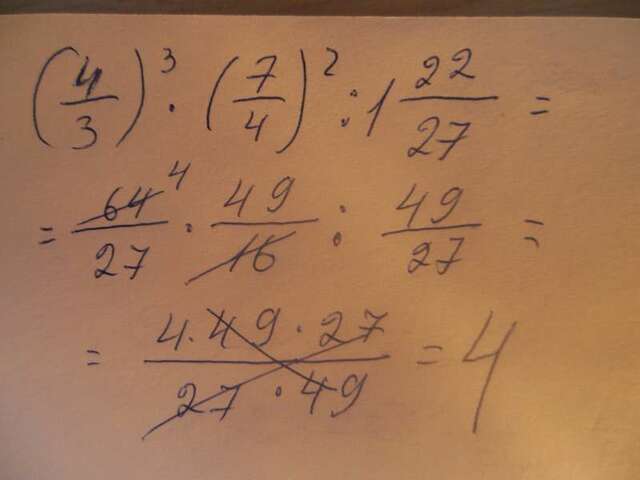 (4/3)³ · (7/4)² : 1 22/27 =
= 64⁴/27 · 49/16 : 49/27 =
= 4·49·27/27·49 = 4